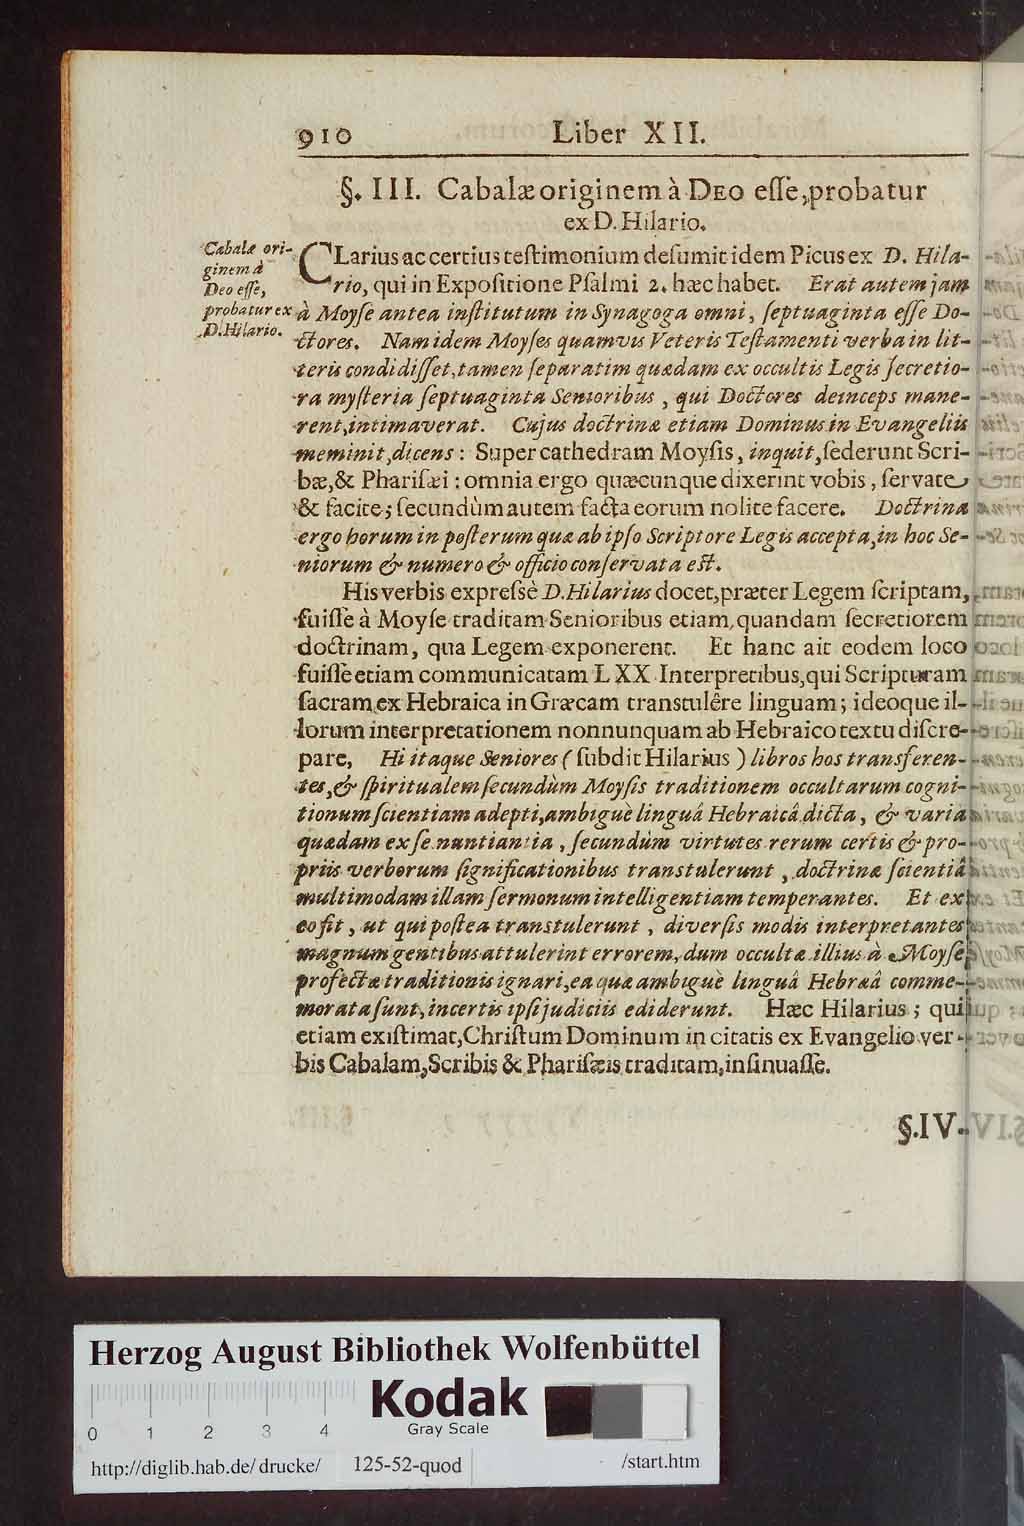 910 Liber XII.
§. III. Cabalæ originem à DEO eſſe, probatur
ex D. Hilario.
Cabalæ ori-
ginem à
Deo eſſe,
probatur ex
D. Hilario.
CLarius ac certius teſtimonium deſumit idem Picus ex D. Hila-
rio, qui in Expoſitione Pſalmi 2. hæc habet. Erat autem jam
à Moyſe antea inſtitutum in Synagoga omni, ſeptuaginta eſſe Do-
ctores. Nam idem Moyſes quamvis Veteris Teſtamenti verba in lit-
teris condidiſſet, tamen ſeparatim quædam ex occultis Legis ſecretio-
ra myſteria ſeptuaginta Senioribus, qui Doctores deinceps mane-
rent, intimaverat. Cujus doctrinæ etiam Dominus in Evangeliis
meminit, dicens: Super cathedram Moyſis, inquit, ſederunt Scri-
bæ, & Phariſæi: omnia ergo quæcunque dixerint vobis, ſervate
& facite; ſecundùm autem facta eorum nolite facere. Doctrina
ergo horum in poſterum quæ ab ipſo Scriptore Legis accepta, in hoc Se-
niorum & numero & officio conſervata eſt.
His verbis expreſsè D. Hilarius docet, præter Legem ſcriptam,
fuiſſe à Moyſe traditam Senioribus etiam, quandam ſecretiorem
doctrinam, qua Legem exponerent. Et hanc ait eodem loco
fuiſſe etiam communicatam LXX Interpretibus, qui Scripturam
ſacram ex Hebraica in Græcam transtulêre linguam; ideoque il-
lorum interpretationem nonnunquam ab Hebraico textu diſcre-
pare, Hi itaque Seniores (ſubdit Hilarius) libros hos transferen-
tes, & ſpiritualem ſecundùm Moyſis traditionem occultarum cogni-
tionum ſcientiam adepti, ambiguè linguâ Hebraicâ dicta, & varia
quædam ex ſe nuntiantia, ſecundùm virtutes rerum certis & pro-
priis verborum ſignificationibus transtulerunt, doctrinæ ſcientiâ
multimodam illam ſermonum intelligentiam temperantes. Et ex
eo fit, ut qui poſtea transtulerunt, diverſis modis interpretantes
magnum gentibus attulerint errorem, dum occultæ illius à Moyſe
profectæ traditionis ignari, ea quæ ambiguè linguâ Hebræâ comme-
morata ſunt, incertis ipſi judiciis ediderunt. Hæc Hilarius; qui
etiam exiſtimat, Chriſtum Dominum in citatis ex Evangelio ver-
bis Cabalam, Scribis & Phariſæis traditam, inſinuaſſe.
§. IV.
Herzog August Bibliothek Wolfenbüttel
Kodak
Gray Scale
0 1 2 3 4
http://diglib.hab.de/drucke/ 125-52-quod /start.htm